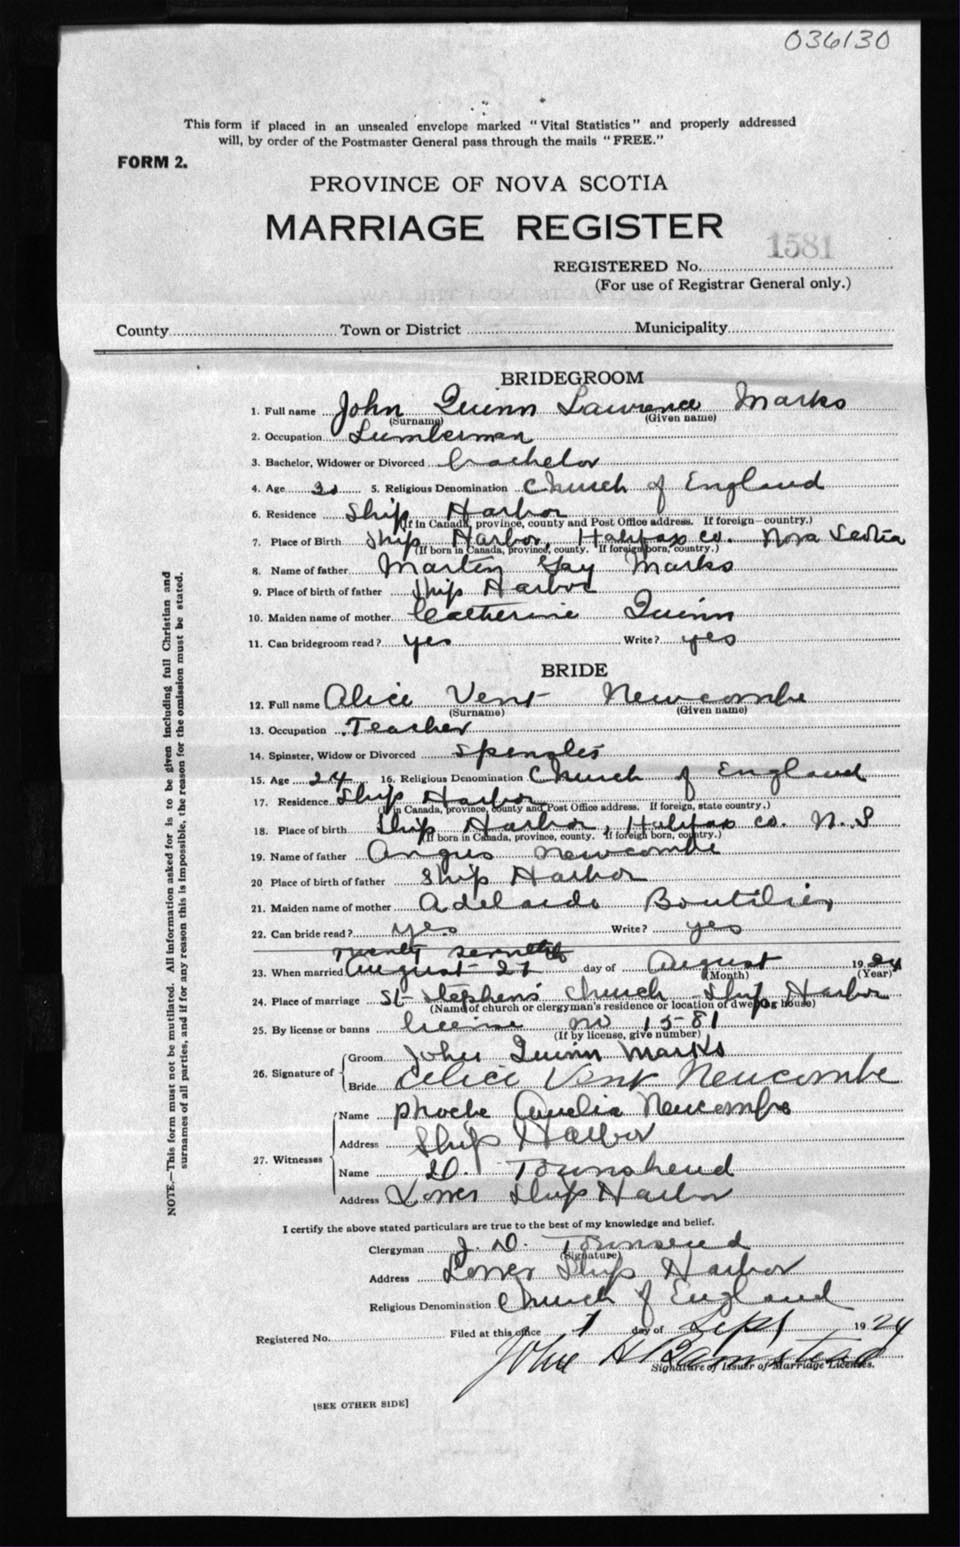 036130
This form if placed in an unsealed envelope marked "Vital Statistics" and properly addressed
will, by order of the Postmaster General pass through the mails "FREE."
FORM 2.
PROVINCE OF NOVA SCOTIA
MARRIAGE REGISTER
1581
REGISTERED No.
(For use of Registrar General only.)
County Town or District Municipality
BRIDEGROOM
1. Full name John Quinn Lawrence Marks
(Surname) (Given name)
2. Occupation Lumberman
3. Bachelor, Widower or Divorced Bachelor
4. Age 5. Religious Denomination Church of England
6. Residence Ship Harbor
(If in Canada, province, county and Post Office address. If foreign—country.)
7. Place of Birth Ship Harbor, Halifax co. Nova Scotia
(If born in Canada, province, county. If foreign born, country.)
8. Name of father Martin Gay Marks
9. Place of birth of father Ship Harbor
10. Maiden name of mother Catherine Quinn
11. Can bridegroom read? yes Write? yes
BRIDE
12. Full name Alice Vent Newcombe
(Surname) (Given name)
13. Occupation Teacher
14. Spinster, Widow or Divorced
15. Age 24 16. Religious Denomination Church of England
17. Residence Ship Harbor
(If in Canada, province, county and Post Office address. If foreign, state country.)
18. Place of birth Ship Harbor, Halifax co. N.S
(If born in Canada, province, county. If foreign born, country.)
19. Name of father Angus Newcombe
20 Place of birth of father Ship Harbor
21. Maiden name of mother Adelaide Boutilier
22. Can bride read? yes Write? yes
Twenty seventh
23. When married August 27 day of August 1924
(Month) (Year)
24. Place of marriage St Stephens' Church Ship Harbor
(Name of church or clergyman's residence or location of dwelling house)
25. By license or banns license no 1581
(If by license, give number)
26. Signature of Groom John Quinn Marks
Bride Alice Vent Newcombe
27. Witnesses Name Phoebe Amelia Newcombe
Address Ship Harbor
Name D. Townshend
Address Lower Ship Harbor
I certify the above stated particulars are true to the best of my knowledge and belief.
Clergyman J. D. Townsend
(Signature)
Address Lower Ship Harbor
Religious Denomination Church of England
Registered No. Filed at this office 1 day of Sept 1924
John H Bamstead
Signature of Issuer of Marriage Licenses.
[SEE OTHER SIDE]
NOTE.—This form must not be mutilated. All information asked for is to be given including full Christian and
surnames of all parties, and if for any reason this is impossible, the reason for the omission must be stated.